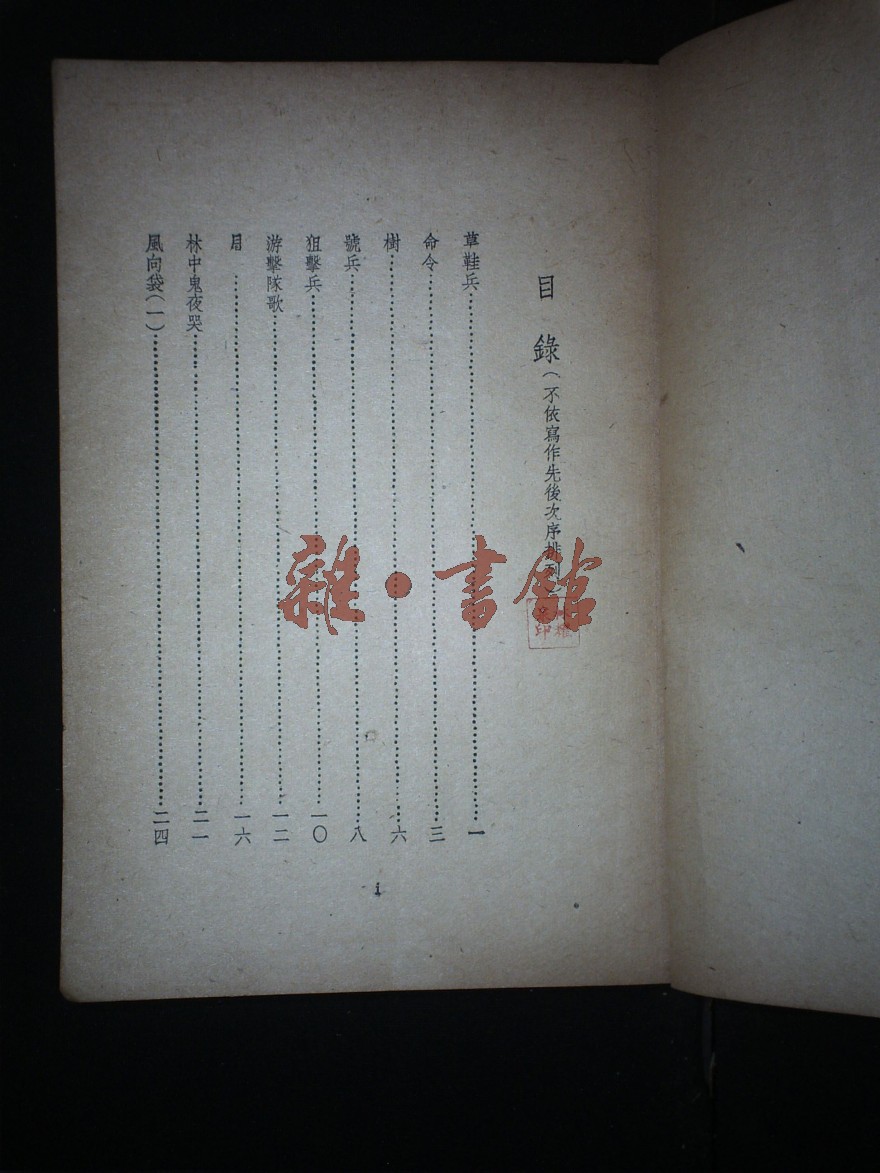 目錄（不依寫作先後次序排列
草鞋兵……一
命令……三
樹……六
號兵……八
狙擊兵……一〇
游擊隊歌……一二
……一六
林中鬼夜哭……二一
風向袋（一）……二四
i
雜·書館